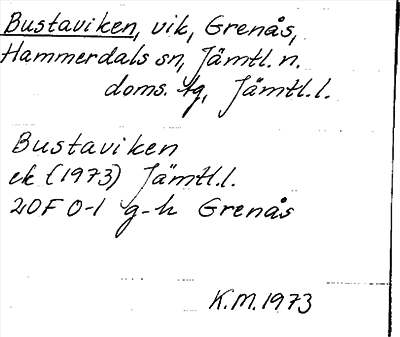 Bustaviken, vik, Grenås,
Hammerdals sn, Jämtl. n.
doms. tg, Jämtl. l.
Bustaviken
ek (1973) Jämtl. l.
20F 0-1 g-h Grenås
K.M. 1973